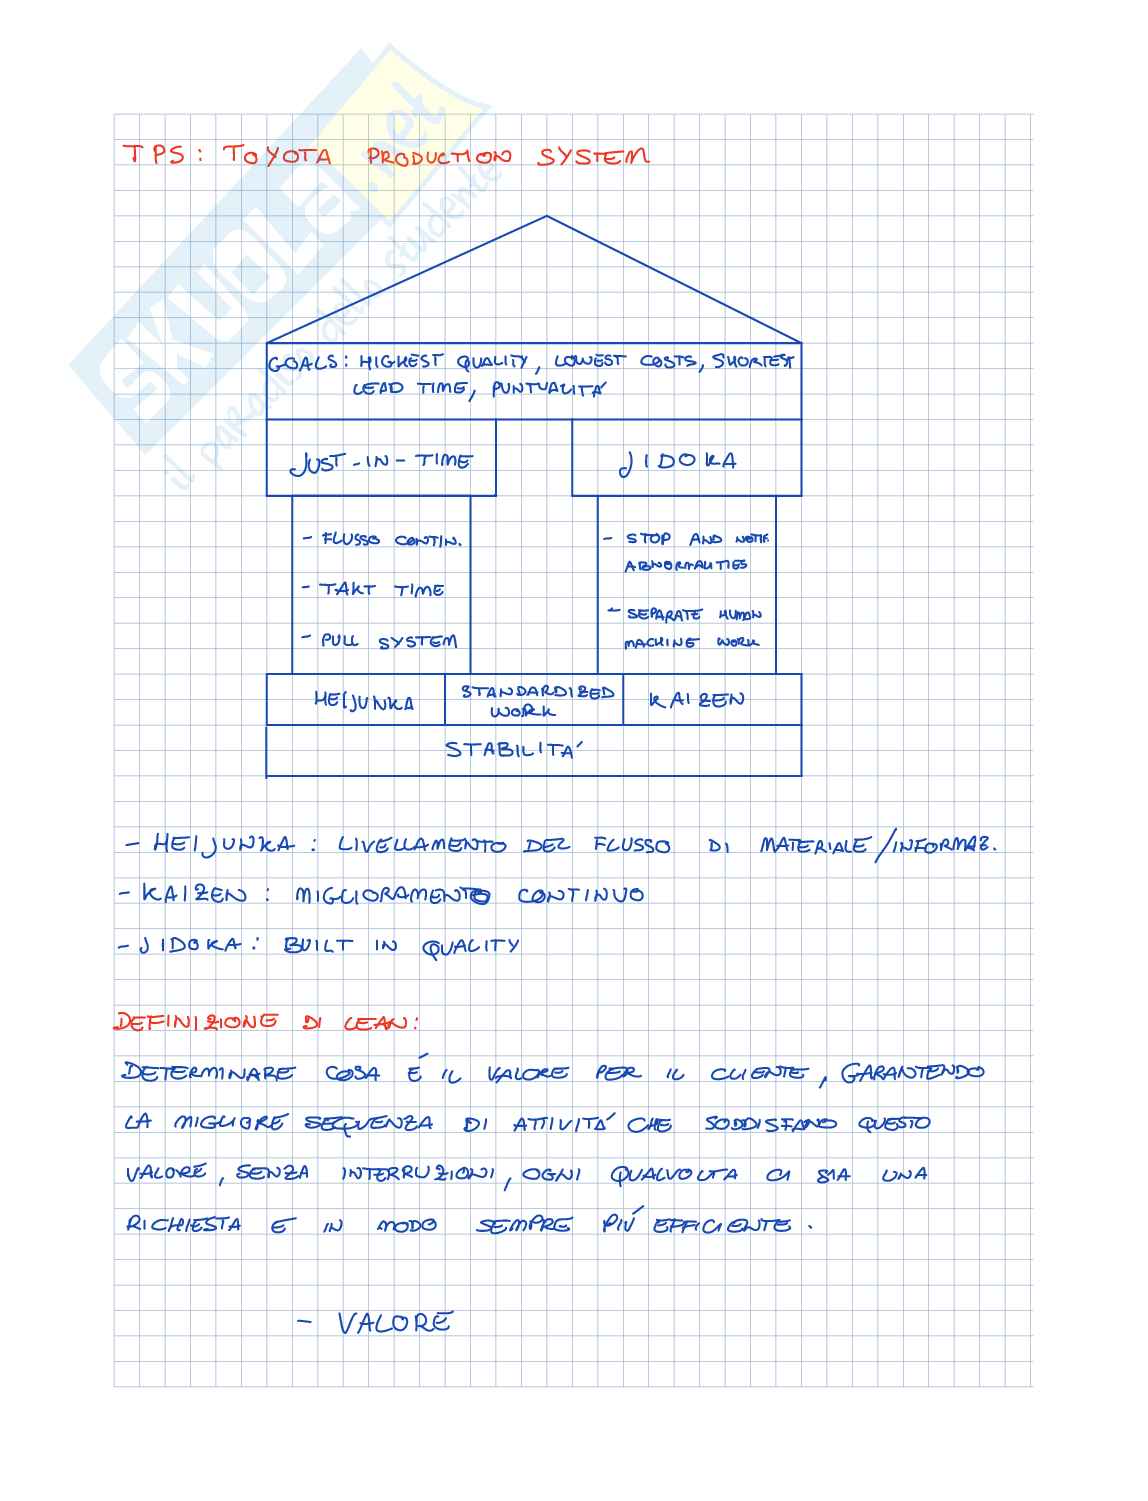 TPS: TOYOTA PRODUCTION SYSTEM
GOALS: HIGHEST QUALITY, LOWEST COSTS, SHORTEST
LEAD TIME, PUNTUALITÀ
JUST-IN-TIME
JIDOKA
- FLUSSO CONTIN.
- TAKT TIME
- PULL SYSTEM
- STOP AND NOTIF.
ABNORMALITIES
- SEPARATE HUMAN
MACHINE WORK
HEIJUNKA
STANDARDIZED
WORK
KAIZEN
STABILITÀ
- HEIJUNKA: LIVELLAMENTO DEL FLUSSO DI MATERIALE/INFORMAZ.
- KAIZEN: MIGLIORAMENTO CONTINUO
- JIDOKA: BUILT IN QUALITY
DEFINIZIONE DI LEAN:
DETERMINARE COSA È IL VALORE PER IL CLIENTE, GARANTENDO
LA MIGLIORE SEQUENZA DI ATTIVITÀ CHE SODDISFANO QUESTO
VALORE, SENZA INTERRUZIONI, OGNI QUALVOLTA CI SIA UNA
RICHIESTA E IN MODO SEMPRE PIÙ EFFICIENTE.
- VALORE
SKUOLA.net
il paradiso dello studente